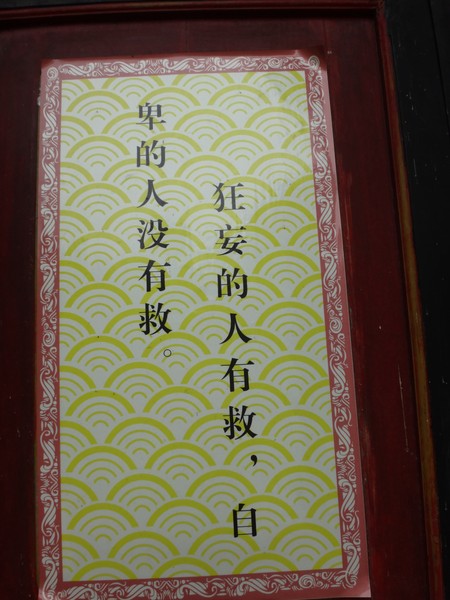 狂妄的人有救，自
卑的人没有救。